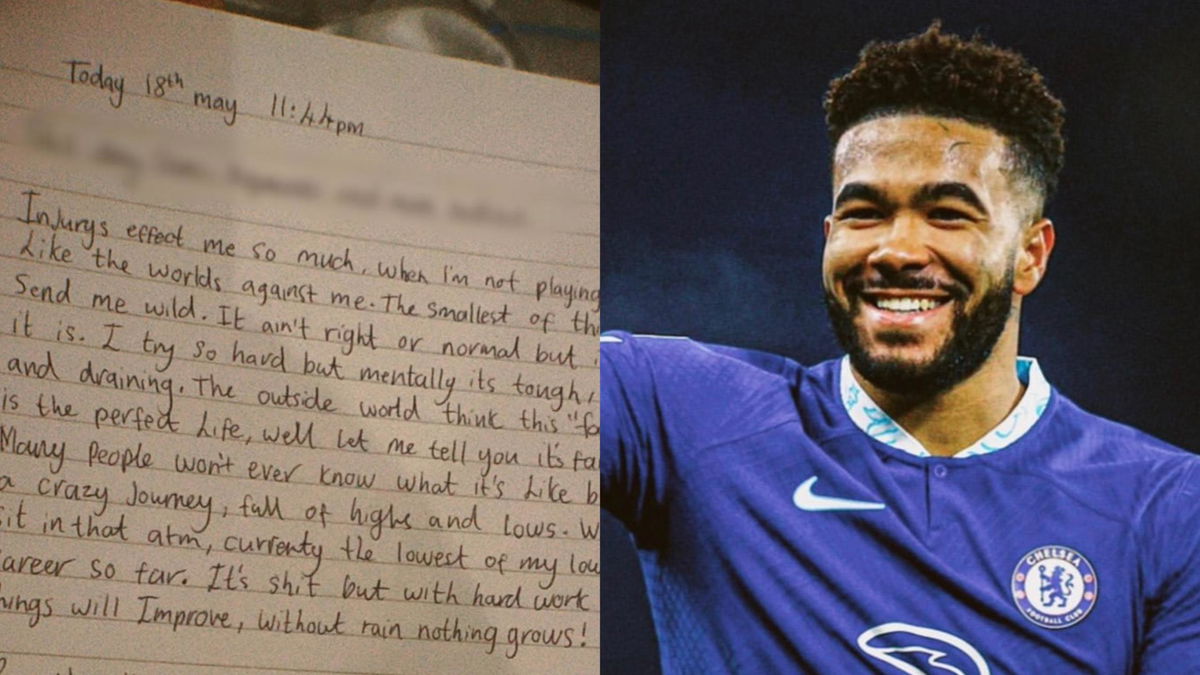 Today 18th may 11:44pm
Injurys effect me so much, when I'm not playing
Like the worlds against me. The smallest of
Send me wild. It ain't right or normal but
it is. I try so hard but mentally its tough,
and draining. The outside world think this
is the perfect Life, well let me tell you it's
Many people won't ever know what it's Like
a crazy Journey, full of highs and lows.
in that atm, currenty the lowest of my
so far. It's sh.t but with hard work
will Improve, without rain nothing grows!
CHELSEA
FOOTBALL CLUB